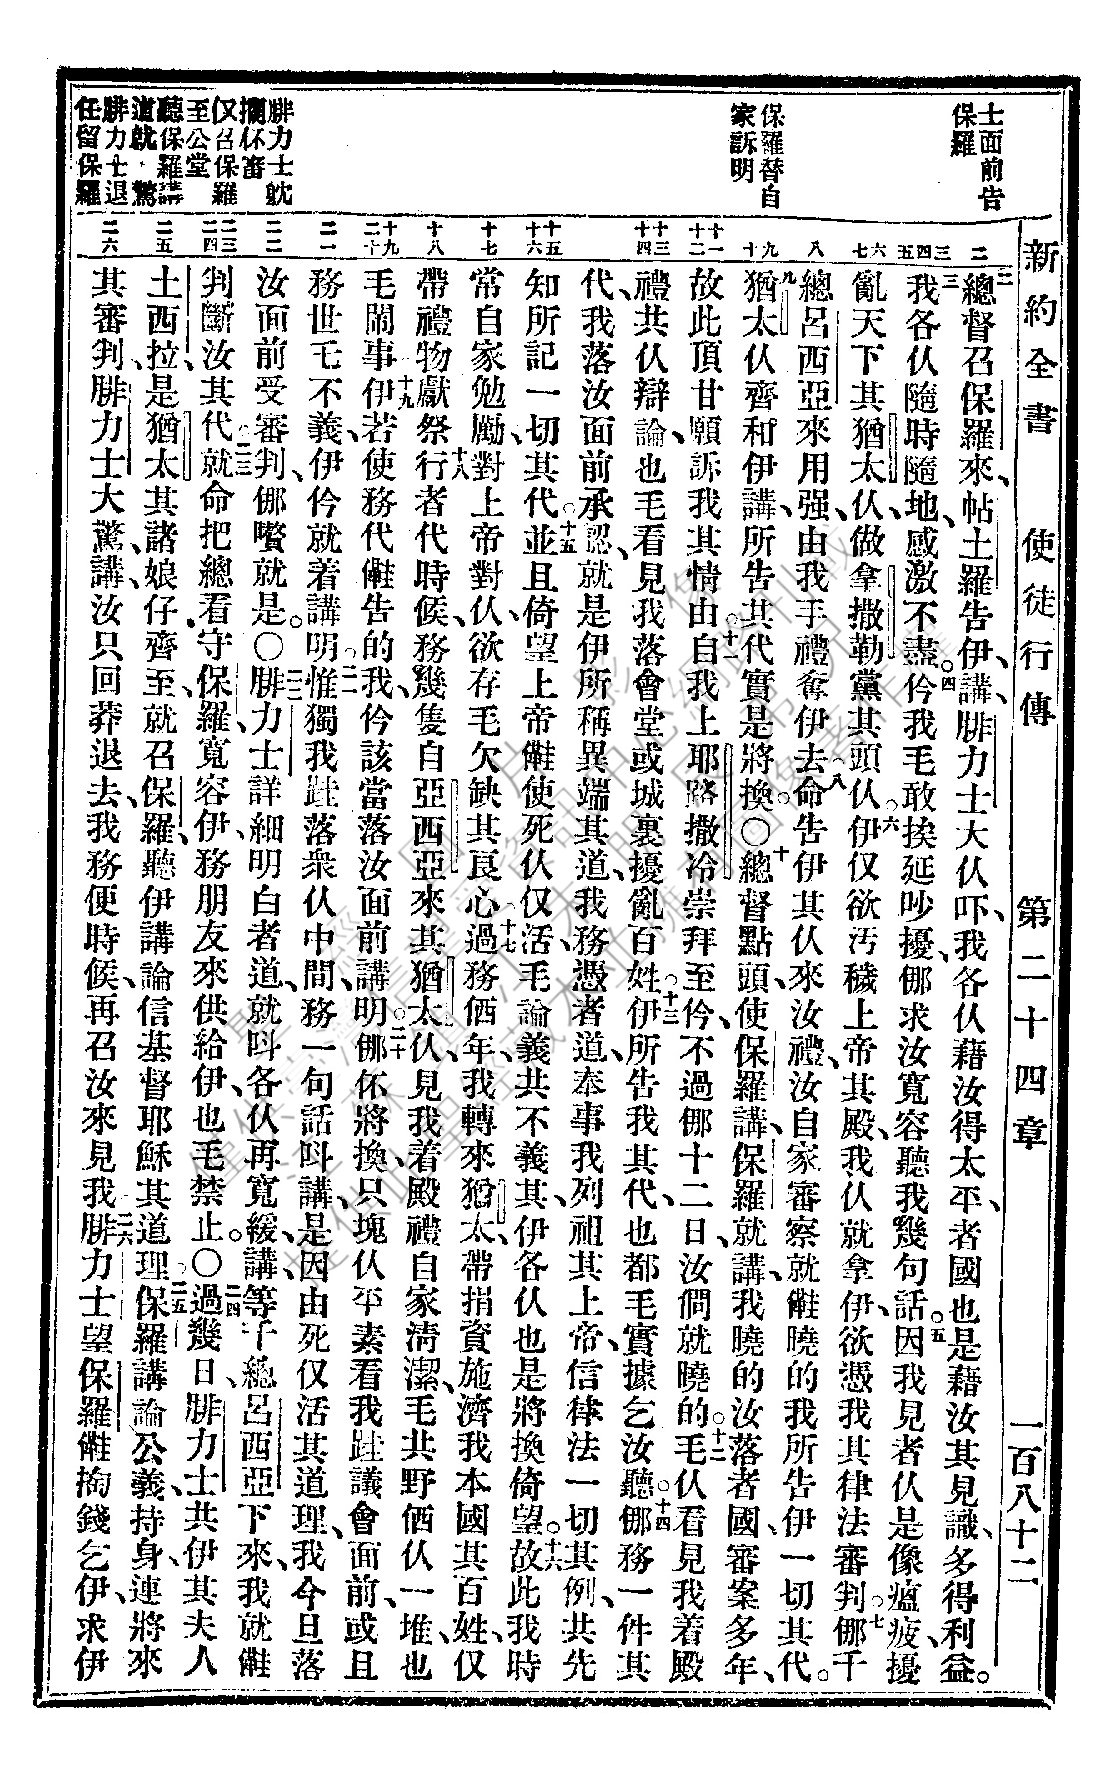 新約全書 使徒行傳 第二十四章 一百八十二
士面前告
保羅
保羅替自
家訴明
腓力士就
擱伓審
仅召保羅
至公堂
聽保羅講
道就驚
腓力士退
任留保羅
二 三 四 五 六 七 八 九 十 十一 十二 十三 十四 十五 十六 十七 十八 十九 二十 二一 二二 二三 二四 二五 二六
二總督召保羅來、帖土羅告伊講、腓力士大仈吓、我各仈藉汝得太平、者國也是藉汝其見識、多得利益。
三我各仈隨時隨地、感激不盡。四仱我毛敢挨延吵擾、㑚求汝寬容聽我幾句話。五因我見者仈是像瘟疲、擾
亂天下其猶太仈、做拿撒勒黨其頭仈。六伊仅欲汚穢上帝其殿、我仈就拿伊、欲憑我其律法審判。七㑚千
總呂西亞來用强、由我手禮奪伊去。八命告伊其仈來汝禮、汝自家審察就會曉的我所告伊一切其代。
九猶太仈齊和伊講、所告其代實是將換。〇十總督點頭、使保羅講、保羅就講、我曉的汝落者國審案多年、
故此頂甘願訴我其情由。十一自我上耶路撒冷崇拜至仱、不過㑚十二日、汝們就曉的。十二毛仈看見我着殿
禮共仈辯論、也毛看見我落會堂或城裏擾亂百姓。十三伊所告我其代、也都毛實據乞汝聽。十四㑚務一件其
代、我落汝面前承認、就是伊所稱異端其道、我務憑者道、奉事我列祖其上帝、信律法一切其例、共先
知所記一切其代。十五並且倚望上帝會使死仈仅活、毛論義共不義其、伊各仈也是將換倚望。十六故此我時
常自家勉勵、對上帝對仈、欲存毛欠缺其良心。十七過務偌年、我轉來猶太、帶捐資施濟我本國其百姓、仅
帶禮物獻祭。十八行者代時候、務幾隻自亞西亞來其猶太仈、見我着殿禮自家淸潔、毛共野偌仈一堆、也
毛鬧事。十九伊若使務代會告的我、仱該當落汝面前講明。二十㑚伓將換、只塊仈平素看我跬議會面前、或且
務世乇不義、伊仱就着講明。二一惟獨我跬落衆仈中間、務一句話呌講、是因由死仅活其道理、我今旦落
汝面前受審判、㑚囋就是。〇二二腓力士詳細明白者道、就呌各仈再寬緩、講、等千總呂西亞下來、我就會
判斷汝其代。二三就命把總看守保羅、寬容伊、務朋友來供給伊、也毛禁止。〇二四過幾日、腓力士共伊其夫人
土西拉、是猶太其諸娘仔、齊至、就召保羅、聽伊講論信基督耶穌其道理。二五保羅講論公義、持身、連將來
其審判、腓力士大驚、講、汝只回莽退去、我務便時候、再召汝來見我。二六腓力士望保羅會掏錢乞伊、求伊